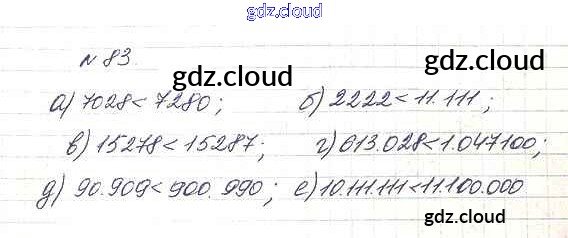 gdz.cloud
№ 83
gdz.cloud gdz.cloud
а) 7028 < 7280; б) 2222 < 11.111;
в) 15278 < 15287; г) 613.028 < 1.047100;
д) 90.909 < 900.990; е) 10.111.111 < 11.100.000
gdz.cloud
gdz.cloud